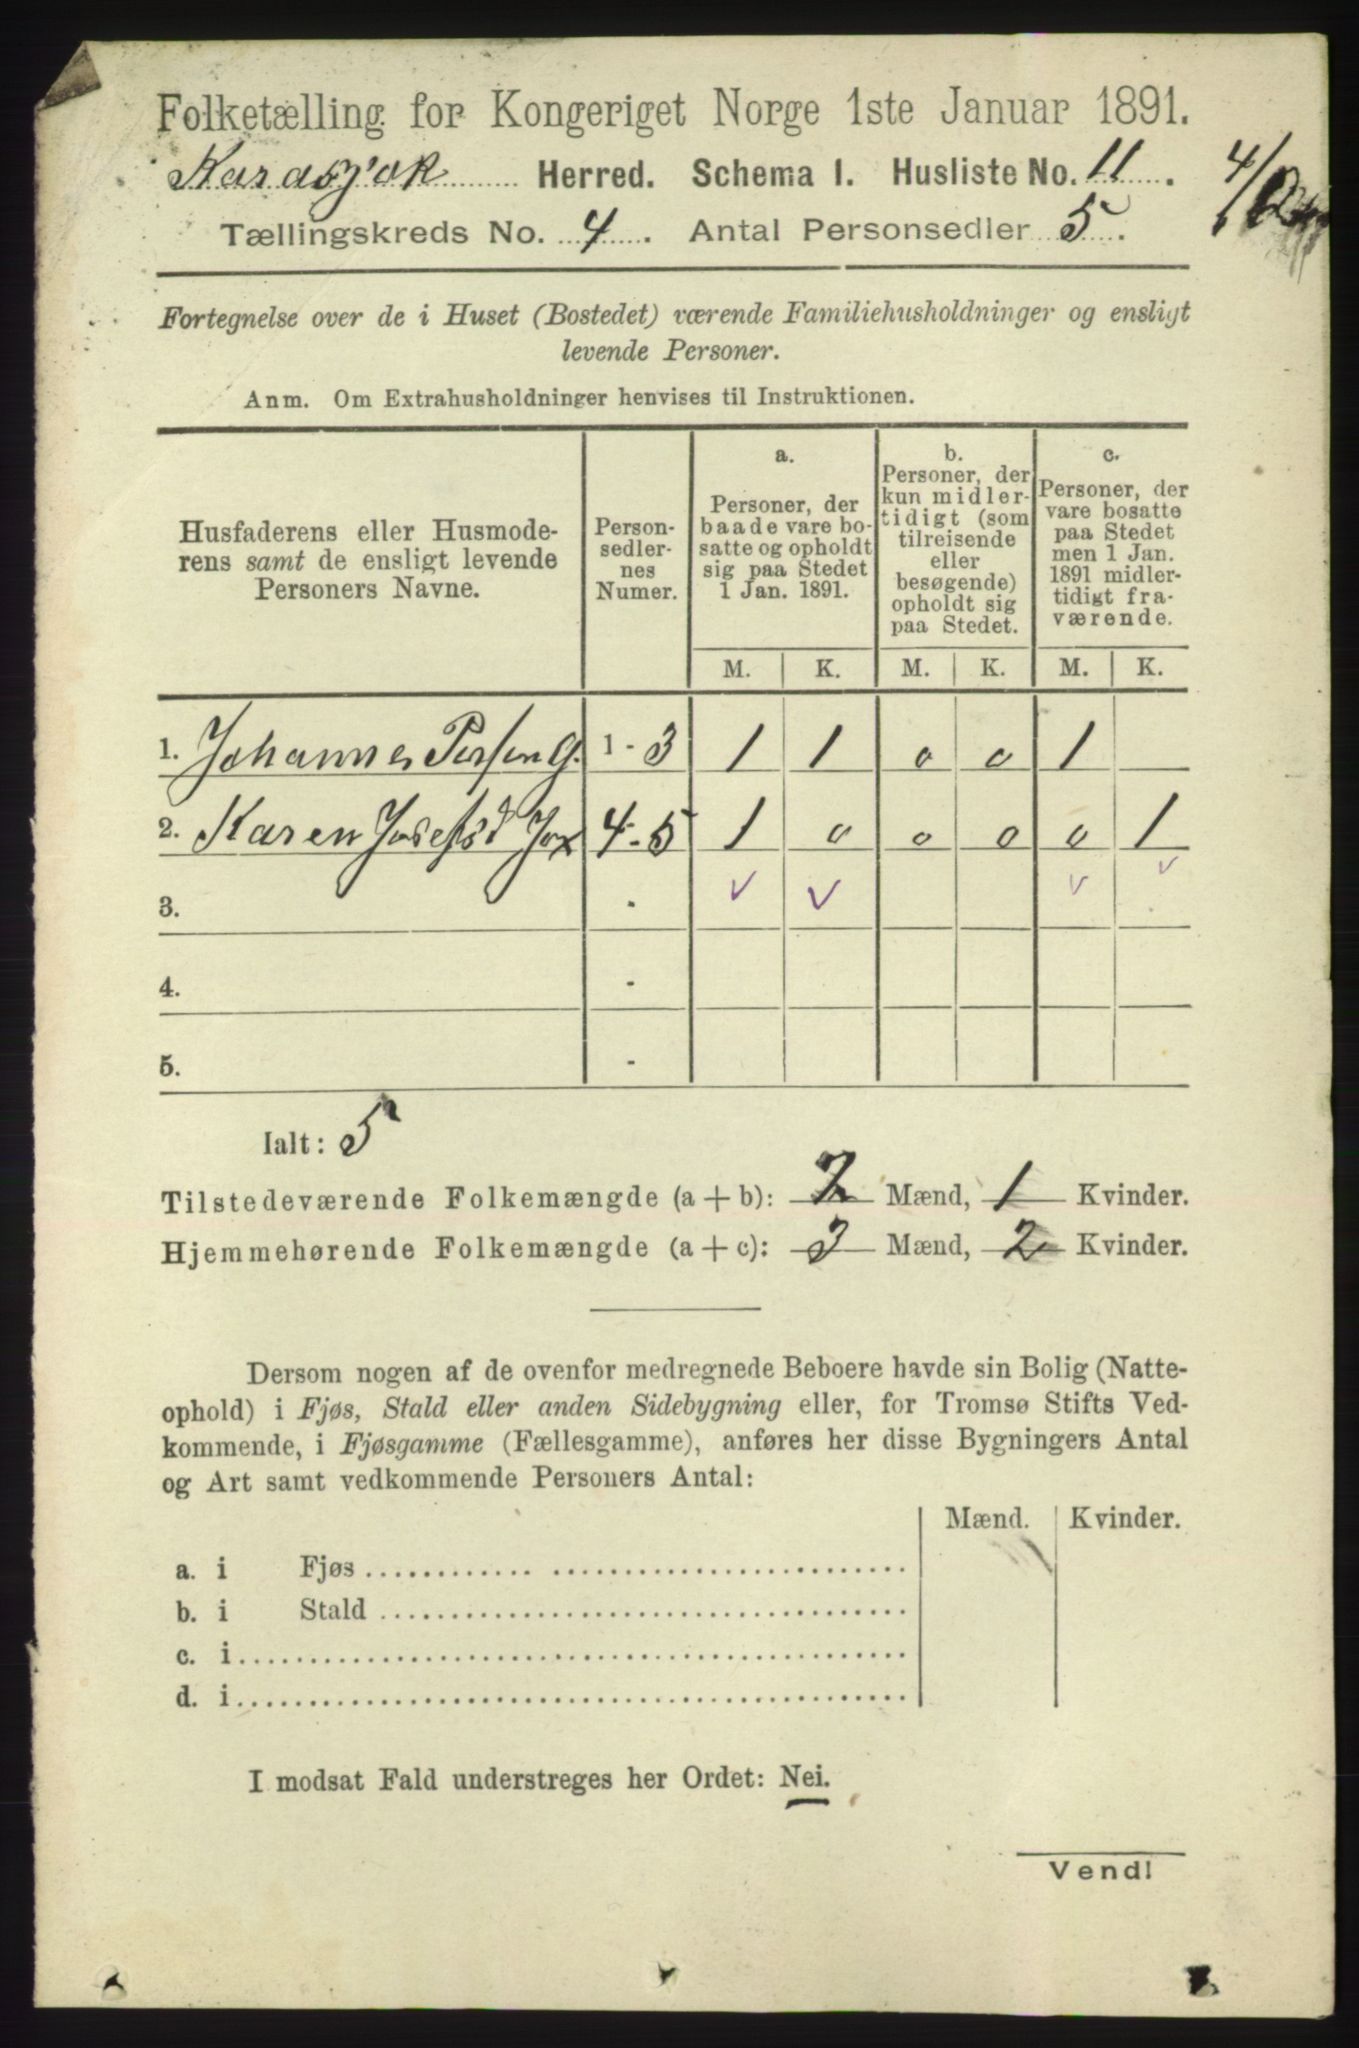 Folketælling for Kongeriget Norge 1ste Januar 1891.
Karasjok Herred. Schema I. Husliste No. 11.
4/
Tællingskreds No. 4. Antal Personsedler 5.
Fortegnelse over de i Huset (Bostedet) værende Familiehusholdninger og ensligt
levende Personer.
Anm. Om Extrahusholdninger henvises til Instruktionen.
Husfaderens eller Husmode-
rens samt de ensligt levende
Personers Navne.
Person-
sedler-
nes
Numer.
a.
Personer, der
baade vare bo-
satte og opholdt
sig paa Stedet
1 Jan. 1891.
b.
Personer, der
kun midler-
tidigt (som
tilreisende
eller
besøgende)
opholdt sig
paa Stedet.
c.
Personer, der
vare bosatte
paa Stedet
men 1 Jan.
1891 midler-
tidigt fra-
værende.
M. K. M. K. M. K.
1. Johannes Persen G. 1 - 3 1 1 0 0 1
2. Karen Josefsd Jox 4 - 5 1 0 0 0 0 1
3. -
4. -
5. -
Ialt: 5
Tilstedeværende Folkemængde (a + b): 2 Mænd, 1 Kvinder.
Hjemmehørende Folkemængde (a + c): 3 Mænd, 2 Kvinder.
Dersom nogen af de ovenfor medregnede Beboere havde sin Bolig (Natte-
ophold) i Fjøs, Stald eller anden Sidebygning eller, for Tromsø Stifts Ved-
kommende, i Fjøsgamme (Fællesgamme), anføres her disse Bygningers Antal
og Art samt vedkommende Personers Antal:
Mænd. Kvinder.
a. i Fjøs
b. i Stald
c. i
d. i
I modsat Fald understreges her Ordet: Nei.
Vend!